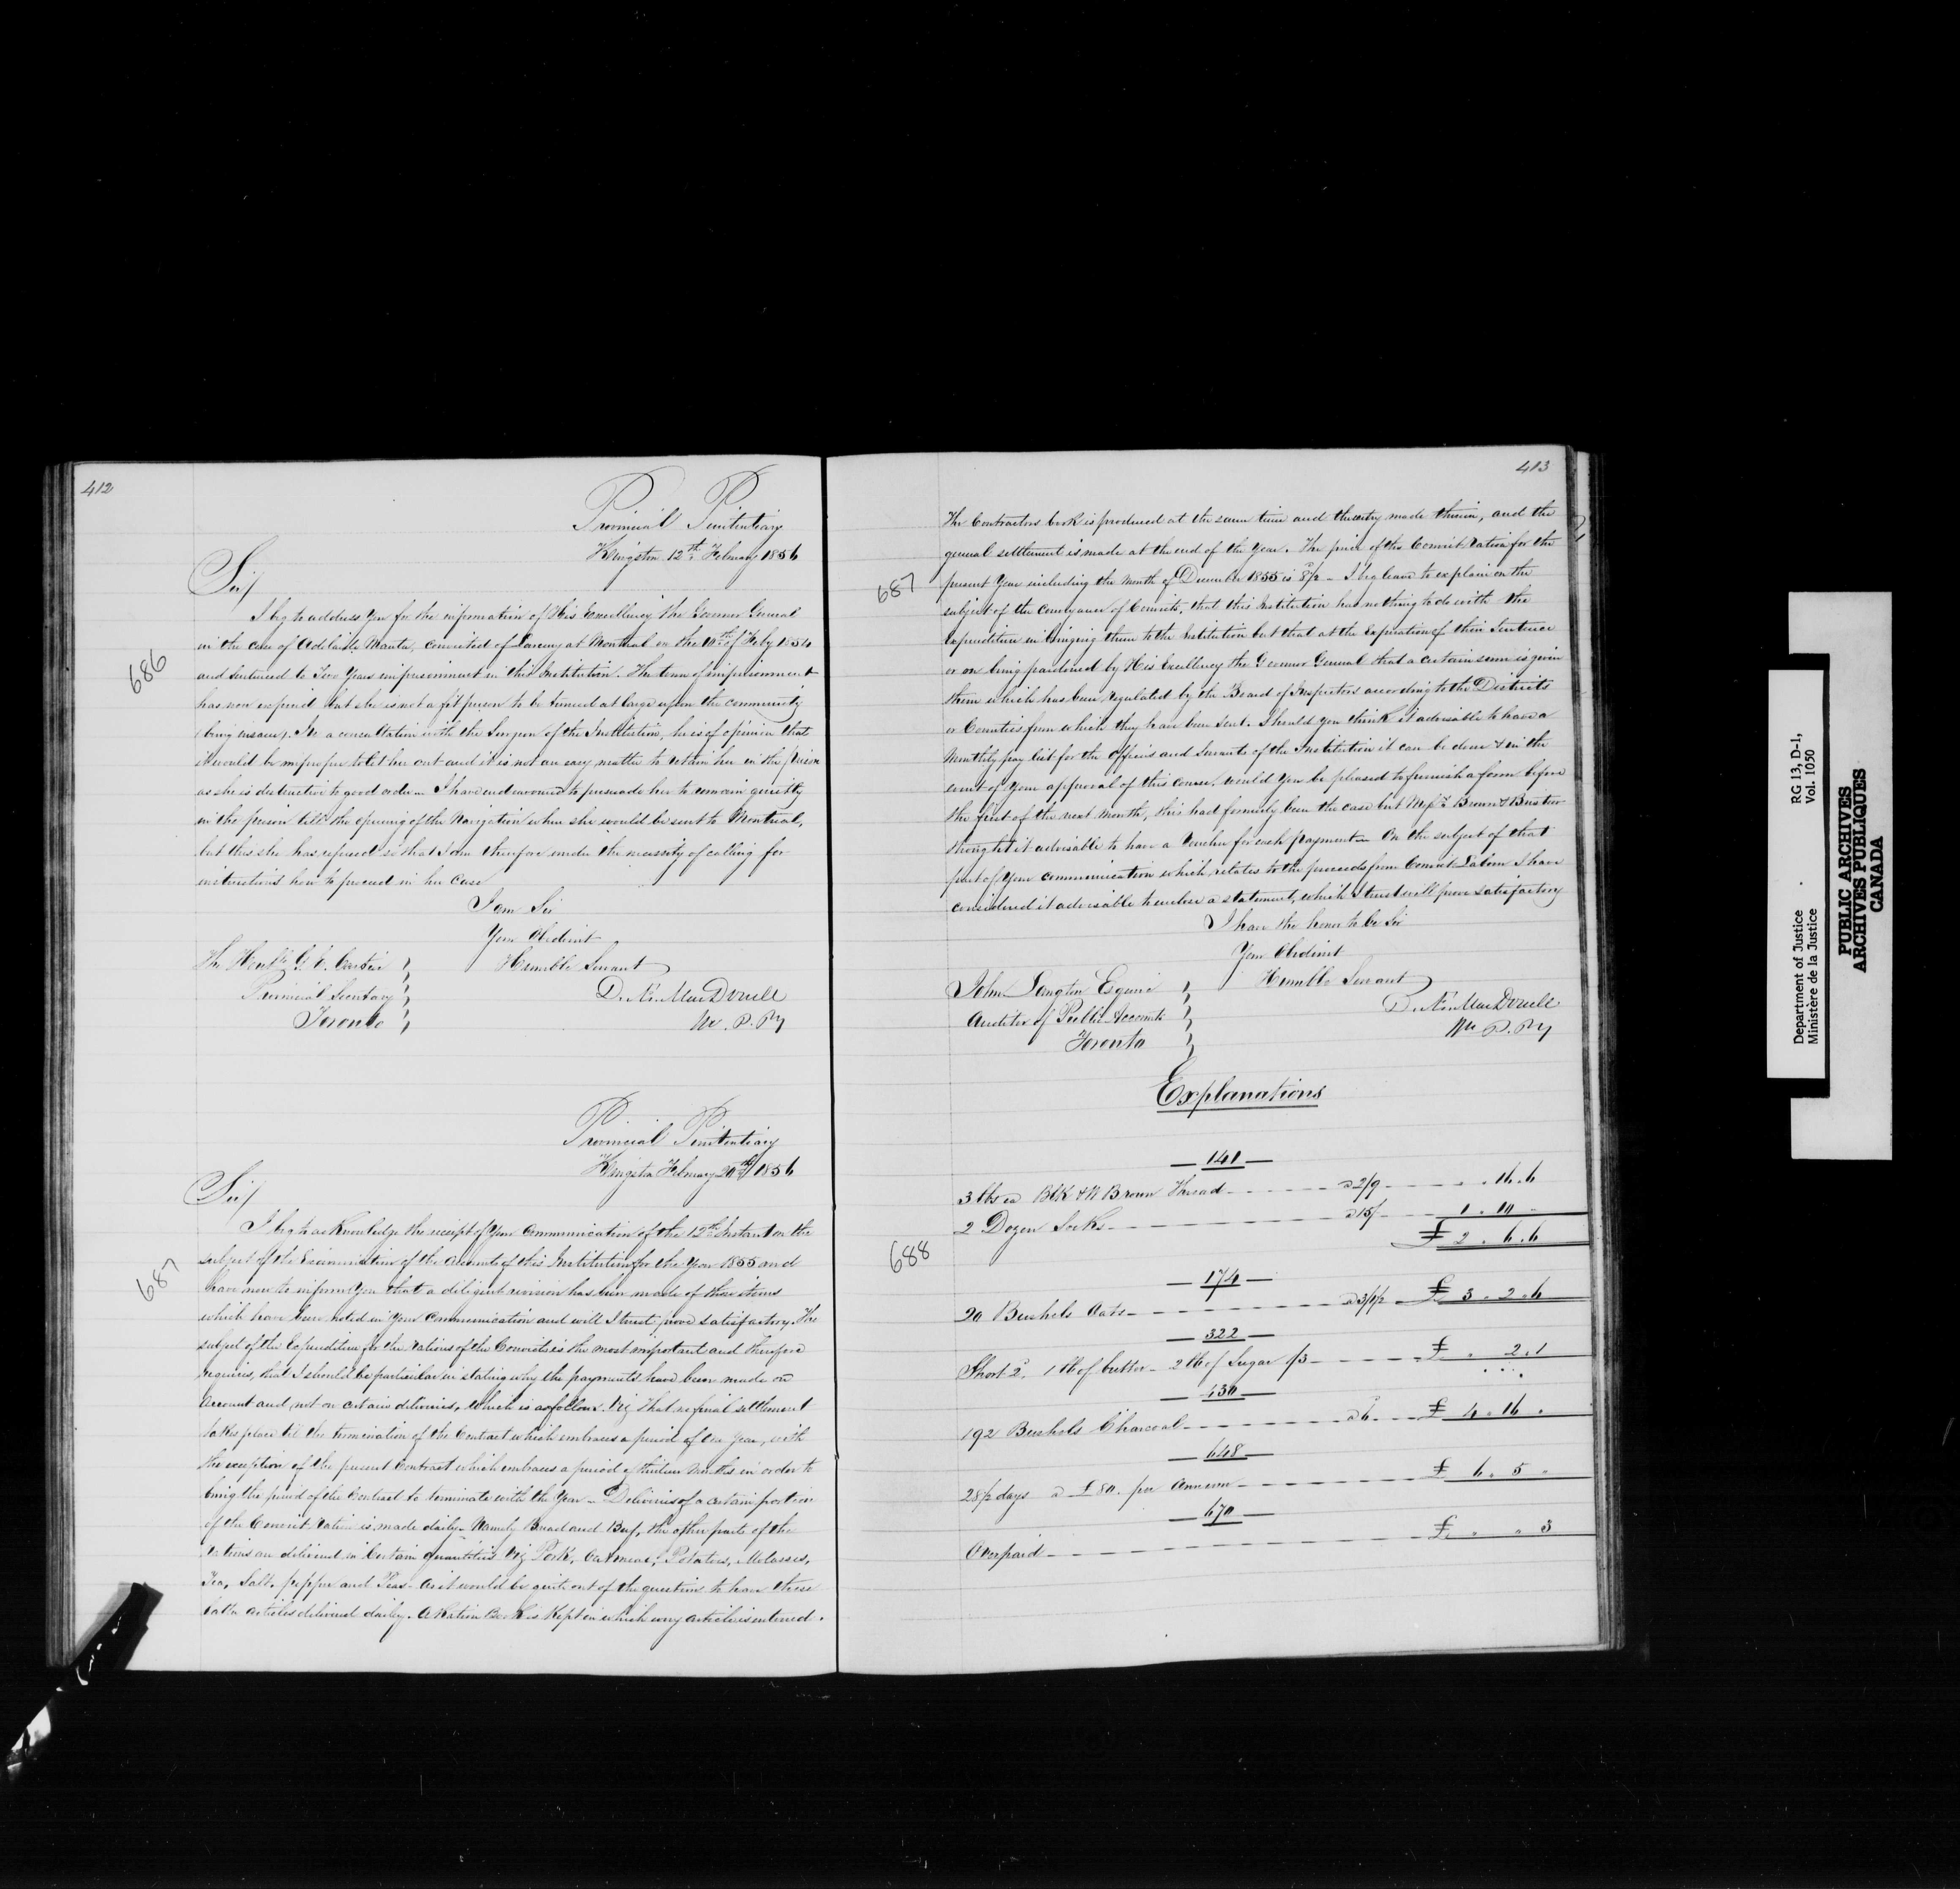 412
Provincial Penitentiary
Kingston 12th February 1856
Sir/
686
I beg to address You for the information of His Excellency the Governor General
in the case of Adelaide Manta, convicted of Larceny at Montreal on the 10th of Feby 1854
and sentenced to Two Years imprisonment in this Institution. The term of imprisonment
has now expired but she is not a fit person to be turned at large upon the community
(being insane). In a consultation with the Surgeon of the Institution, he is of opinion that
it would be improper to let her out and it is not an easy matter to retain her in the prison
as she is destructive to good order — I have endeavoured to persuade her to remain quietly
in the prison till the opening of the Navigation when she would be sent to Montreal,
but this she has refused so that I am therefore under the necessity of calling for
instructions how to proceed in her case
I am Sir
Your Obedient
Humble Servant
The Honble G. E. Cartier
Provincial Secretary
Toronto
D. Æ. MacDonell
Wr. P. Py
Provincial Penitentiary
Kingston February 20th 1856
Sir/
687
I beg to acknowledge the receipt of Your Communication of the 12th Instant on the
subject of the Examination of the Accounts of this Institution for the Year 1855 and
have now to inform You that a diligent revision has been made of those items
which have been noted in Your Communication and will I trust prove satisfactory. The
subject of the Expenditure for the Rations of the Convicts is the most important and therefore
requires, that I should be particular in stating why the payments have been made on
Account and not on certain deliveries, which is as follows. Viz That no final settlement
takes place til the termination of the Contract which embraces a period of one Year, with
the exception of the present Contract which embraces a period of thirteen months in order to
bring the period of the Contract to terminate with the Year — Deliveries of a certain portion
of the Convict Ration is made daily — Namely Bread and Beef, the other parts of the
rations are delivered in Certain quantities Viz Pork, Oatmeal, Potatoes, Molasses,
Tea, Salt, pepper and Peas — As it would be quite out of the question to have these
latter articles delivered daily. A Ration Book is Kept in which every article is entered.
413
The Contractors book is produced at the same time and the entry made therein, and the
general settlement is made at the end of the Year. The price of the Convict Ration for the
687
present Year including the Month of December 1855 is 8½d — I beg leave to explain on the
subject of the conveyance of Convicts, that this Institution has nothing to do with the
Expenditure in bringing them to the Institution but that at the Expiration of their Sentence
or on being pardoned by His Excellency the Governor General that a certain sum is given
them which has been regulated by the Board of Inspectors according to the Districts
or Counties from which they have been sent. Should you think it advisable to have a
Monthly pay list for the Officers and Servants of the Institution it can be done & in the
event of Your approval of this course, would You be pleased to furnish a form before
the first of the next Month, this had formerly been the case but Messrs Brown & Bristow
thought it advisable to have a Voucher for each payment — On the subject of that
part of Your communication which relates to the proceeds from Convict Labour I have
considered it advisable to enclose a statement, which I trust will prove satisfactory
I have the honor to be Sir
Your Obedient
Humble Servant
John Langton Esquire
Auditor of Public Accounts
Toronto
D. Æ. MacDonell
Wr P. Py
Explanations
— 141 —
3 lbs ea Blk & W Brown Thread a 2/9 16.6
2 Dozen Socks a 15/ 1.10 -
688
£ 2.6.6
— 174 —
20 Bushels Oats a 3/1½ £ 3.2.6
— 322 —
Short 2d. 1 lb of butter — 2 lb of Sugar 1/3 £ . 2.1
— 430 —
192 Bushels Charcoal a 6d £ 4.16.
— 648 —
28½ days a £80. per Annum £ 6.5 "
— 670 —
Overpaid £ " " 3
Department of Justice
Ministère de la Justice
RG 13, D-1,
Vol. 1050
PUBLIC ARCHIVES
ARCHIVES PUBLIQUES
CANADA